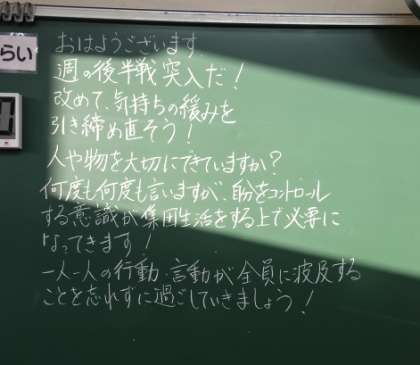 らい
おはようございます
週の後半戦突入だ！
改めて、気持ちの緩みを
引き締め直そう！
人や物を大切にできていますか？
何度も何度も言いますが、自分をコントロール
する意識が集団生活をする上で必要に
なってきます！
一人一人の行動・言動が全員に波及する
ことを忘れずに過ごしていきましょう！